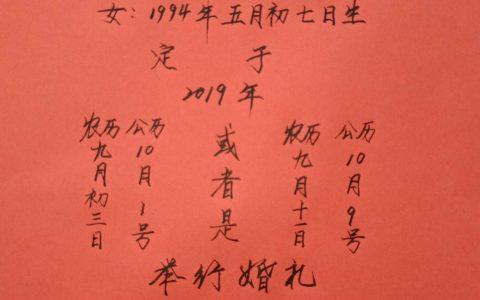 女:1994年五月初七日生
定 子
2019年
农历九月初三日
公历10月1号
或者是
农历九月十一日
公历10月9号
举行婚礼